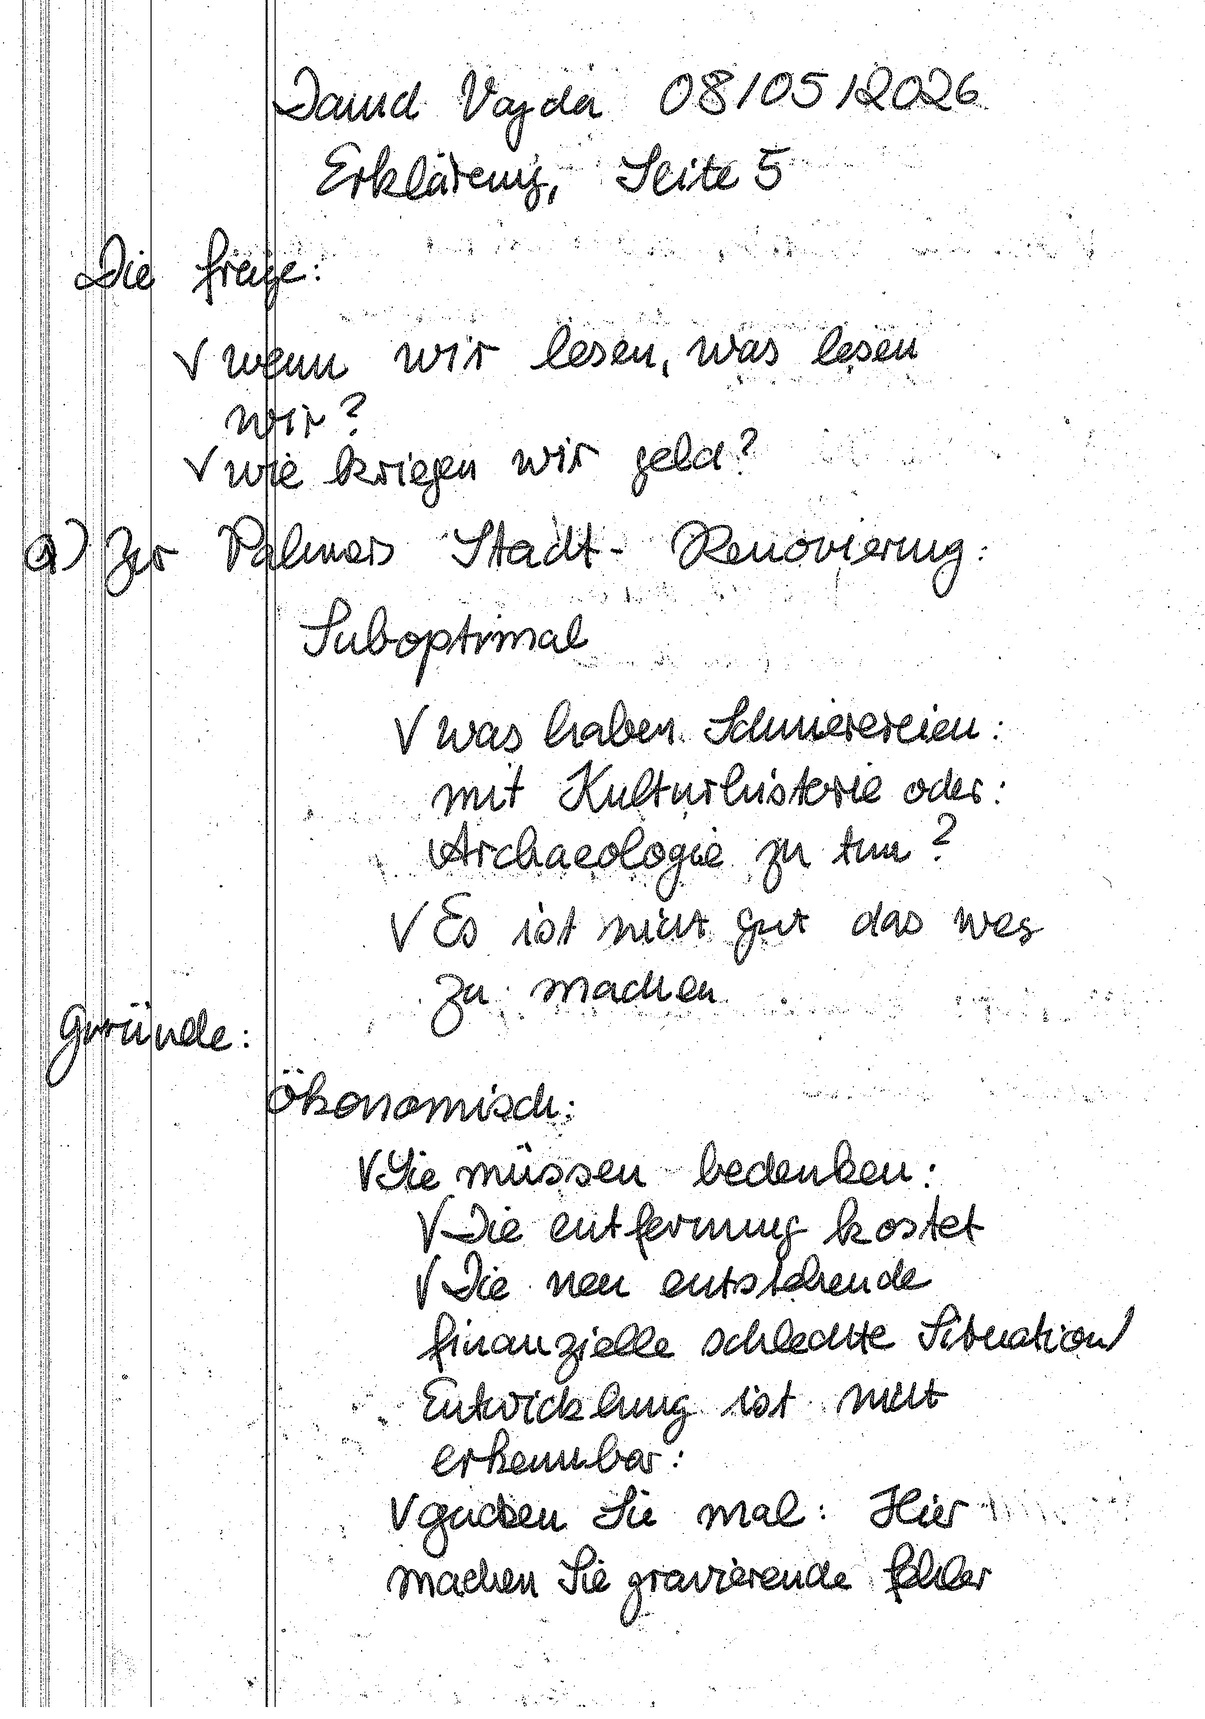 David Vajda 08/05/2026
Erklärung, Seite 5
Die frage:
√ wenn wir lesen, was lesen
wir?
√ wie kriegen wir geld?
a) Zur Palmers Stadt- Renovierung:
Suboptimal
√ was haben Schmierereien:
mit Kulturhistorie oder:
Archaeologie zu tun?
√ Es ist nicht gut das weg
zu machen
gründe:
ökonomisch:
√ Sie müssen bedenken:
√ Die entfernung kostet
√ Die neu entstehende
finanzielle schlechte Situation/
Entwicklung ist nicht
erkennbar:
√ gucken Sie mal: Hier
machen Sie gravierende fehler